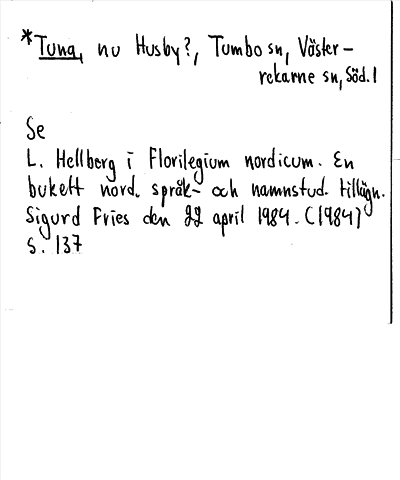 *Tuna, nu Husby?, Tumbo sn, Väster-
rekarne sn, Söd. l
Se
L. Hellberg i Florilegium nordicum. En
bukett nord. språk- och namnstud. tillägn.
Sigurd Fries den 22 april 1984. (1984)
s. 137